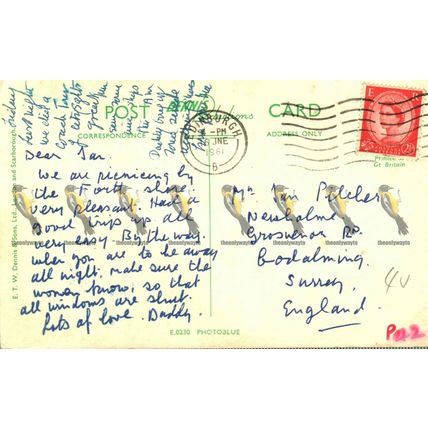 POST
DENNIS
Productions
CARD
CORRESPONDENCE
ADDRESS ONLY
EDINBURGH
4 - PM
JNE
1961
B
E
Printed in
Gt. Britain
Dear Ian.
We are picnicing by
the Forth shore
very pleasant. Had a
good trip up all
very easy. By the way.
when you are to be away
all night, make sure the
woman knows, so that
all windows are shut.
Lots of love. Daddy.
Mr. Ian Pilcher
Newholme
Grosvenor Rd.
Godalming
Surrey
England
theonlywayto
theonlywayto
theonlywayto
theonlywayto
theonlywayto
theonlywayto
theonlywayto
E. T. W. Dennis & Sons, Ltd., London and Scarborough
E.0230 PHOTOBLUE